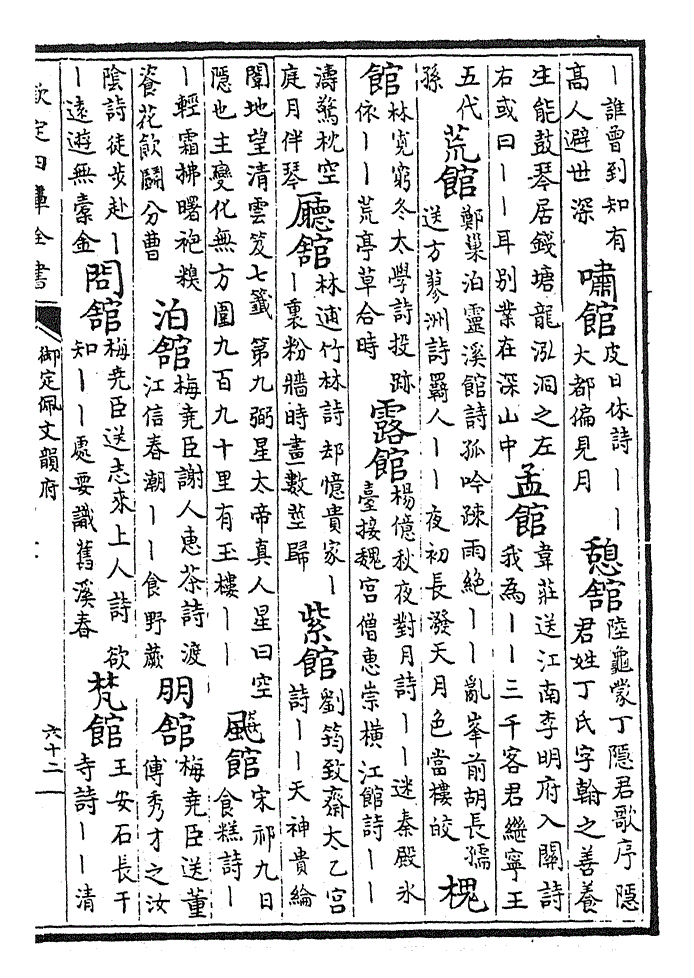 丨誰曾到知有
高人避世深
嘯館
皮日休詩丨丨
大都偏見月
憩館
陸龜蒙丁隱君歌序隱
君姓丁氏字翰之善養
生能鼓琴居錢塘龍泓洞之左
右或曰丨丨耳別業在深山中
孟館
韋莊送江南李明府入關詩
我為丨丨三千客君繼寧王
五代
孫
荒館
鄭巢泊靈溪館詩孤吟疎雨絕丨丨亂峯前胡長孺
送方蓼洲詩羈人丨丨夜初長潑天月色當樓皎
槐
館
林寬窮冬太學詩投跡
依丨丨荒亭草合時
露館
楊億秋夜對月詩丨丨迷秦殿氷
臺接魏宮僧惠崇橫江館詩丨丨
濤驚枕空
庭月伴琴
廳館
林逋竹林詩却憶貴家丨
丨裏粉牆時畫數莖歸
紫館
劉筠致齋太乙宮
詩丨丨天神貴綸
闈地望清雲笈七籤 第九弼星太帝真人星曰空
隱也主變化無方圍九百九十里有玉樓丨丨
颷館
宋祁九日
食糕詩丨
丨輕霜拂曙袍糗
餈花飲鬬分曹
泊館
梅堯臣謝人惠茶詩渡
江信春潮丨丨食野蕨
朋館
梅堯臣送董
傳秀才之汝
陰詩徒步赴丨
丨遠遊無橐金
問館
梅堯臣送志來上人詩欲
知丨丨處要識舊溪春
梵館
王安石長干
寺詩丨丨清
欽定四庫全書
御定佩文韻府
六十二